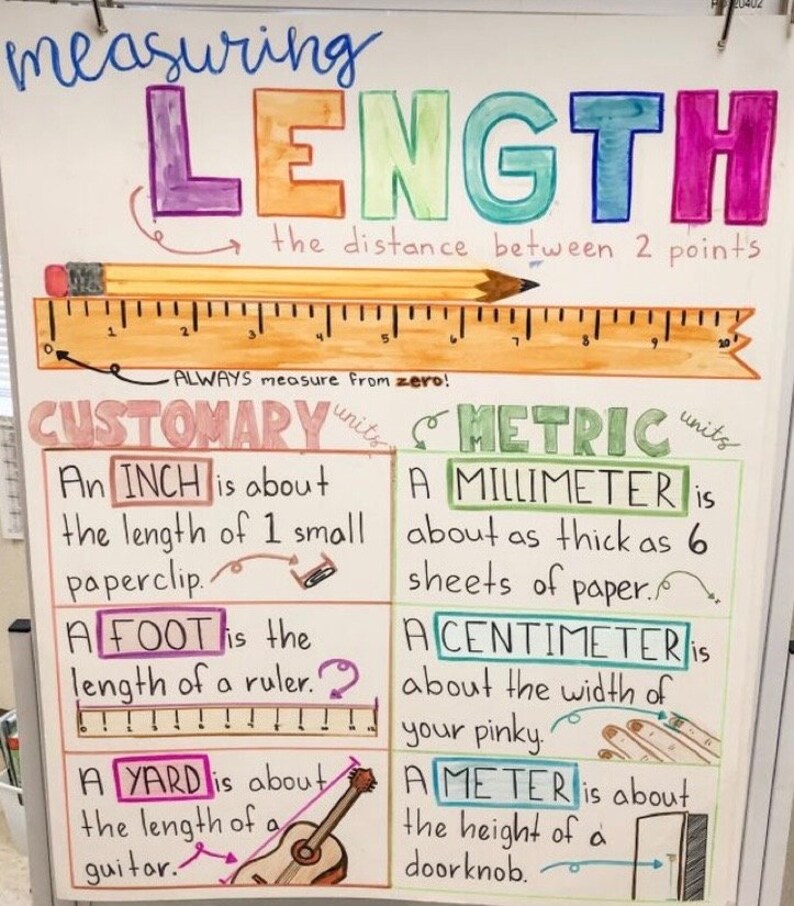 measuring
LENGTH
the distance between 2 points
1 2 3 4 5 6 7 8 9 20
0
ALWAYS measure from zero!
CUSTOMARY units
METRIC units
An INCH is about
the length of 1 small
paperclip.
A FOOT is the
length of a ruler.
0 1 2 3 4 5 6 7 8 9 10 11 12
A YARD is about
the length of a
guitar.
A MILLIMETER is
about as thick as 6
sheets of paper.
A CENTIMETER is
about the width of
your pinky.
A METER is about
the height of a
doorknob.